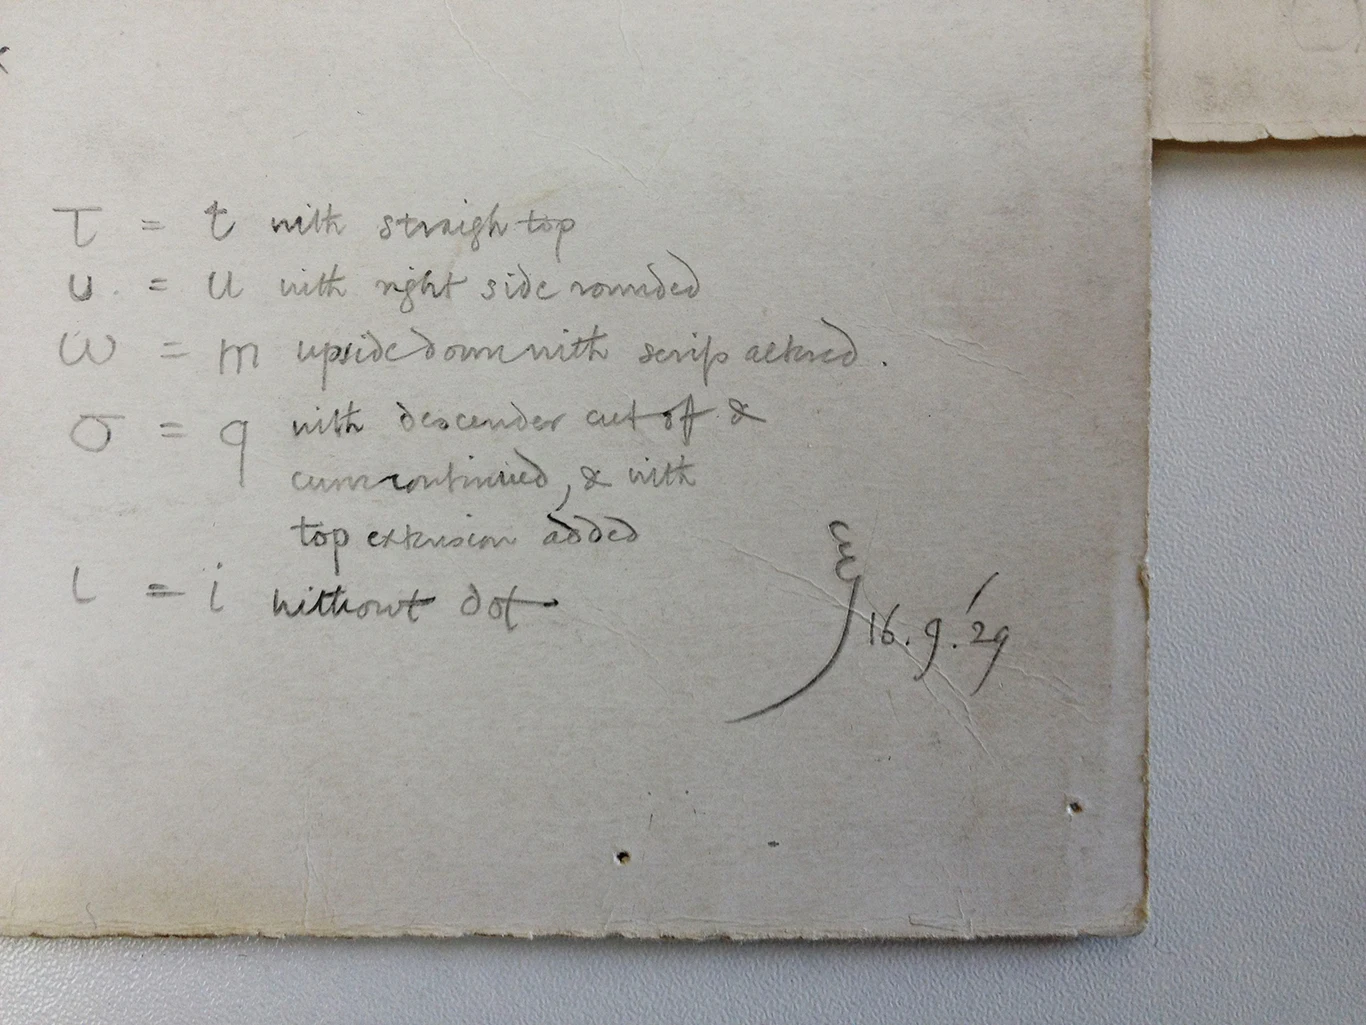 τ = t with straigh top
υ = u with right side rounded
ω = m upside down with serifs altered.
σ = q with descender cut off &
curve continued, & with
top extension added
ι = i without dot
16.9.'29